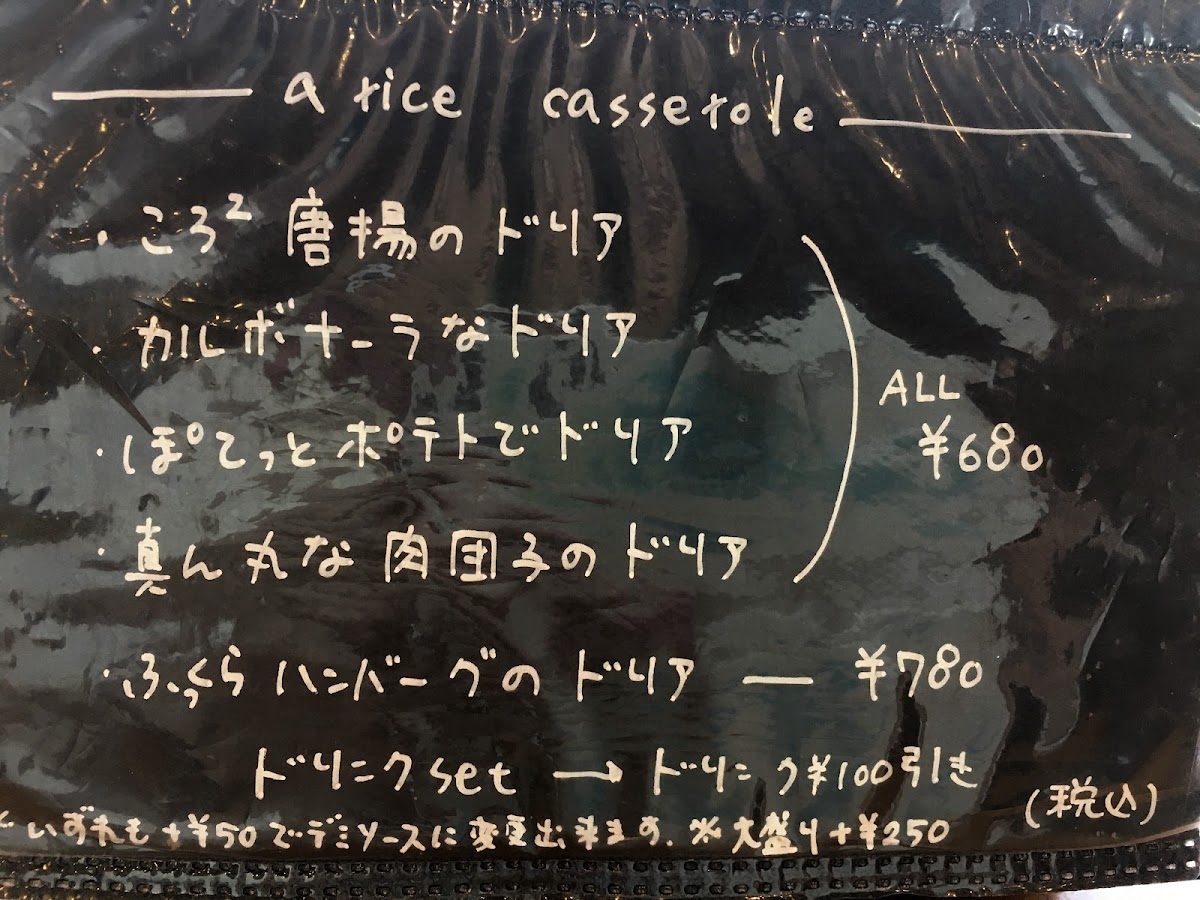 a rice casserole
・ころ² 唐揚のドリア
・カルボナーラなドリア
・ぽてっとポテトでドリア
・真ん丸な肉団子のドリア
ALL
¥680
・ふっくらハンバーグのドリア — ¥780
ドリンクset → ドリンク¥100引き
(税込)
いずれも+¥50でデミソースに変更出来ます。※大盛り+¥250